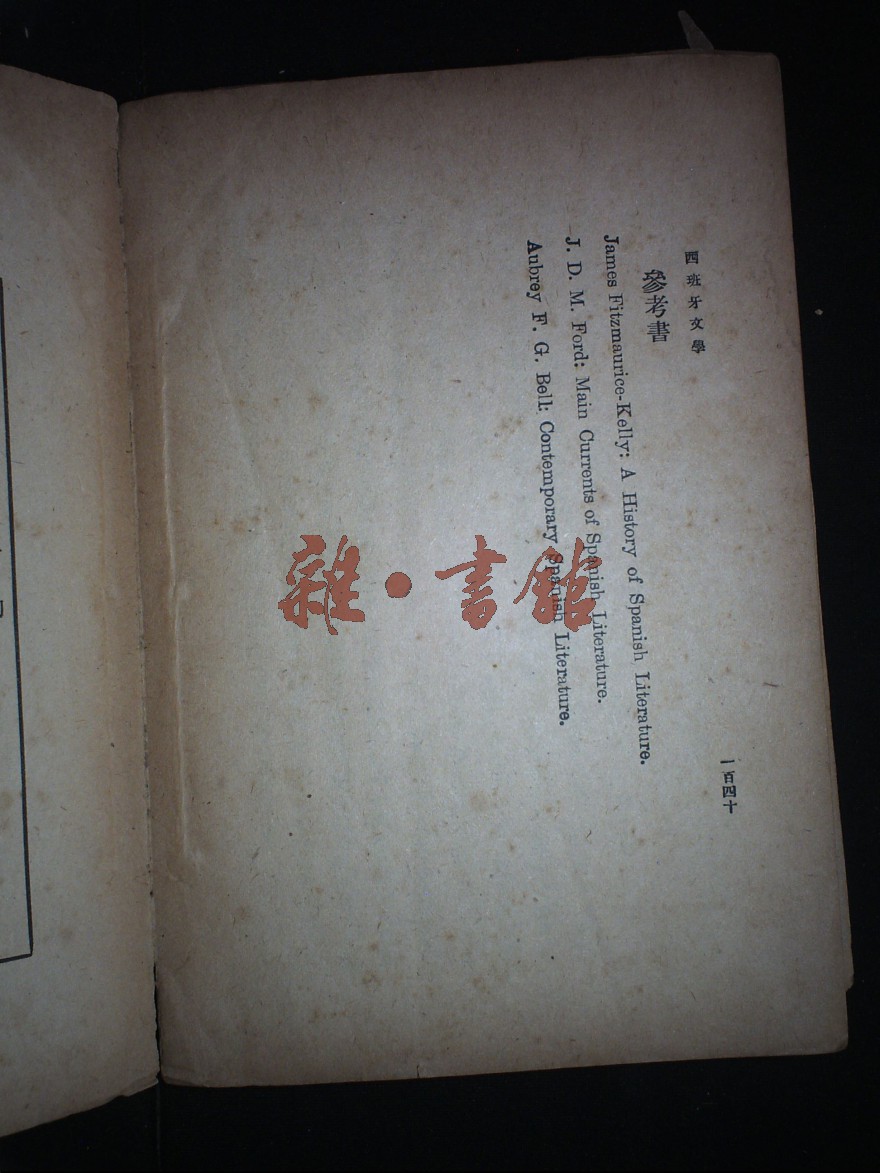 西班牙文學
參考書
James Fitzmaurice-Kelly: A History of Spanish Literature.
J. D. M. Ford: Main Currents of Spanish Literature.
Aubrey F. G. Bell: Contemporary Spanish Literature.
一百四十
雜·書館